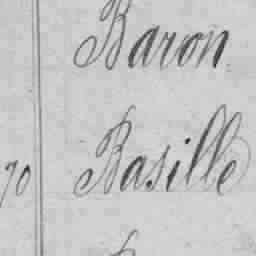 Baron
70 Basille